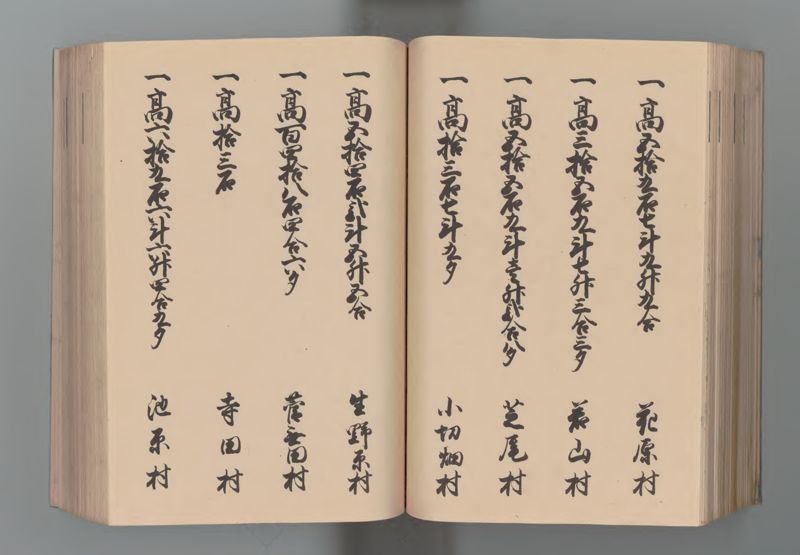 一高五拾九石七斗九升九合 萩原村
一高三拾五石九斗七升三合三夕 若山村
一高五拾五石九斗壱升弐合八夕 芝尾村
一高拾三石七斗九夕 小切畑村
一高五拾四石弐斗五升五合 生野原村
一高百四拾八石四合六夕 菅無田村
一高拾三石 寺田村
一高六拾九石六斗六升四合九夕 池原村